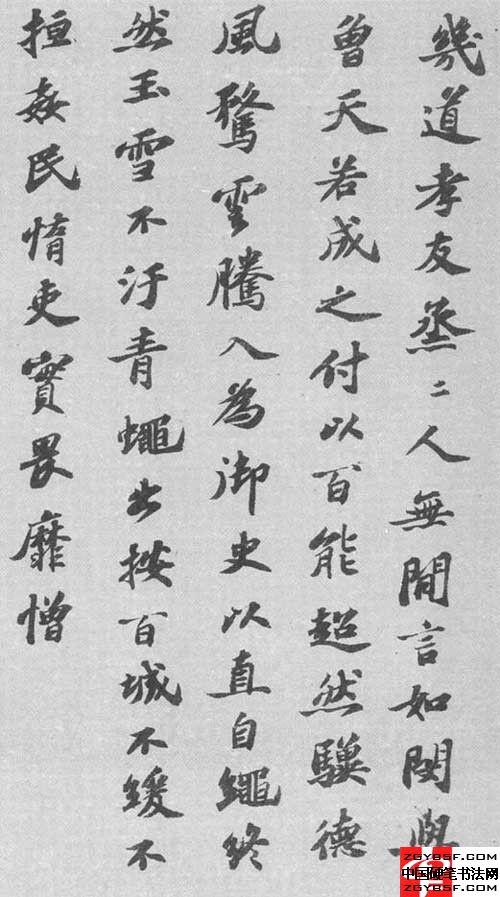 幾道孝友烝二人無間言如閔與
曾天若成之付以百能超然驥德
風騖雲騰入為御史以直自繩終
然玉雪不汙青蠅出按百城不緩不
搄姦民惰吏實畏靡憎
ZGYBSF.COM
中国硬笔书法网
ZGYBSF.COM